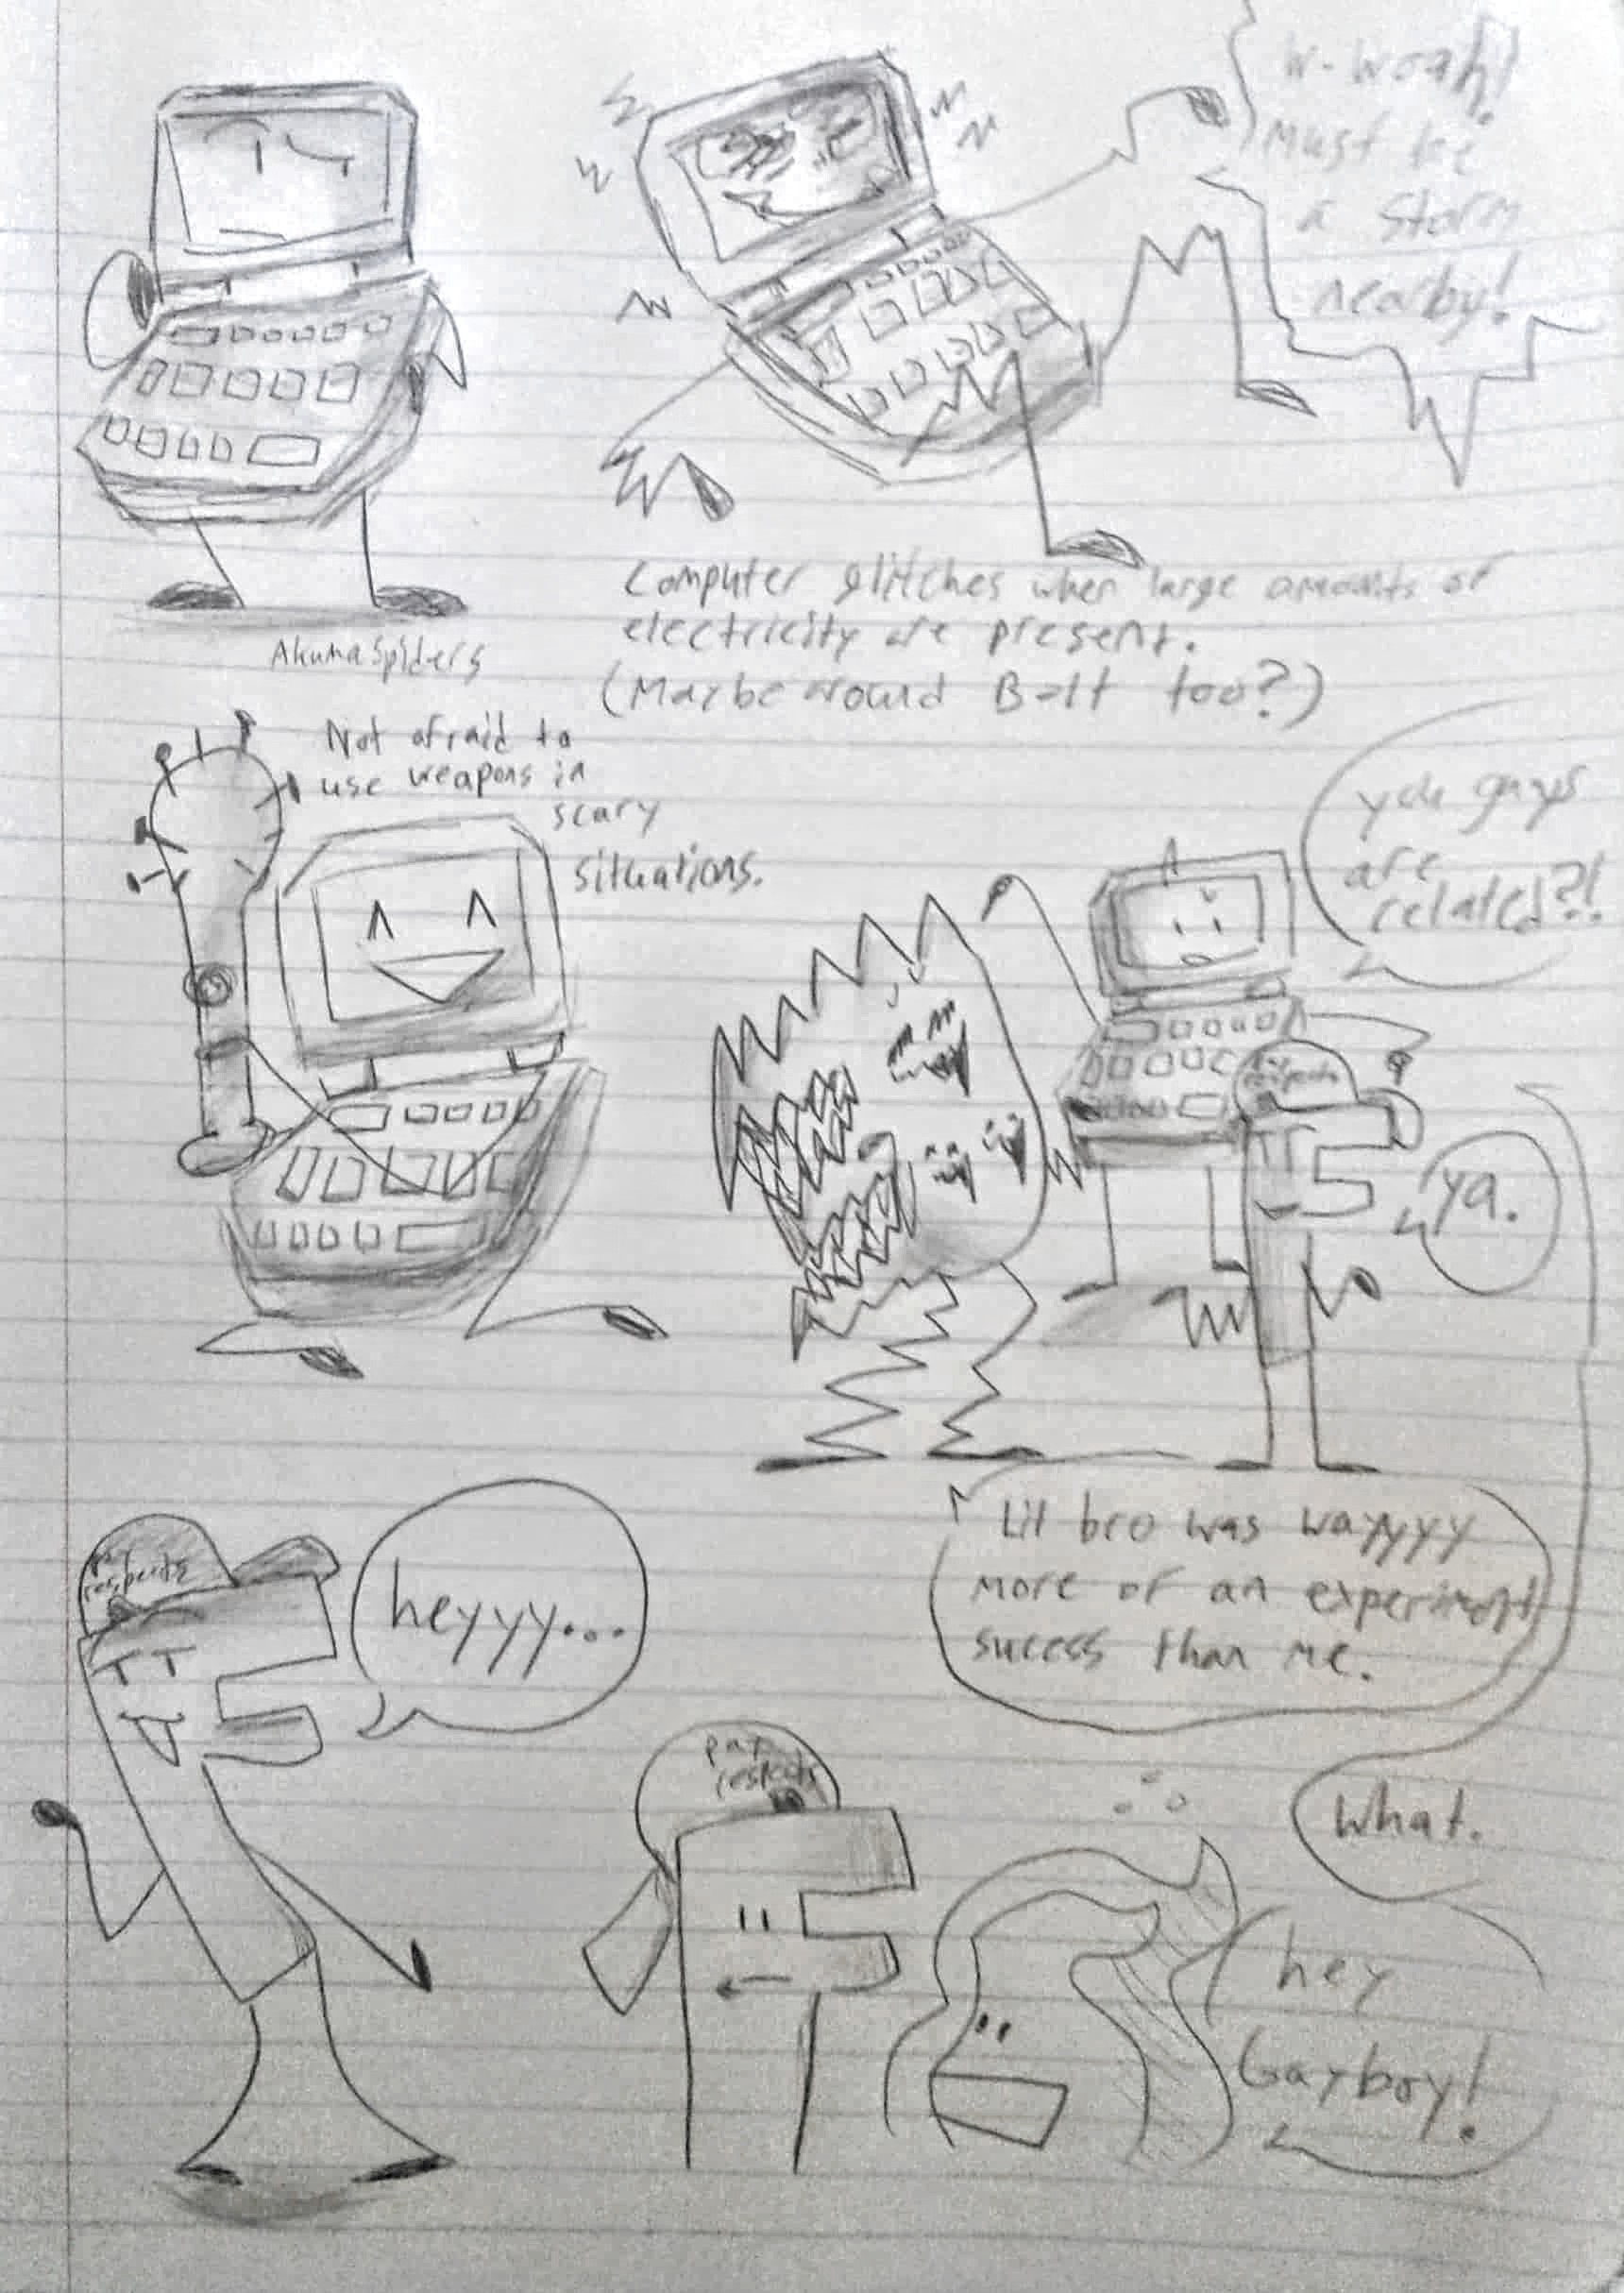 W-Woah!
Must be
a storm
nearby!
Computer glitches when large amounts of
electricity are present.
(Maybe around Bolt too?)
AkumaSpiders
Not afraid to
use weapons in
scary
situations.
you guys
are
related?!
ya.
Lil bro was wayyyy
more of an experiment
sucess than me.
heyyy...
pay
respects
pay
respects
What.
hey
Gayboy!